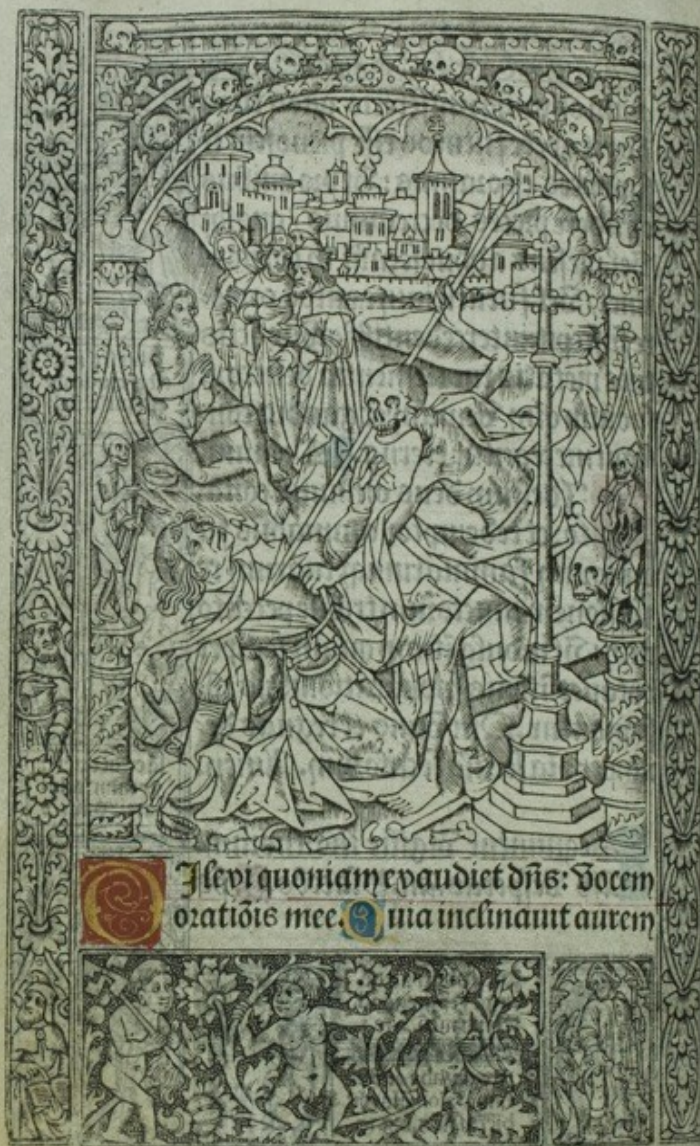 Dilexi quoniam exaudiet dn̄s: Vocem
oratiōis mee. Quia inclinavit aurem